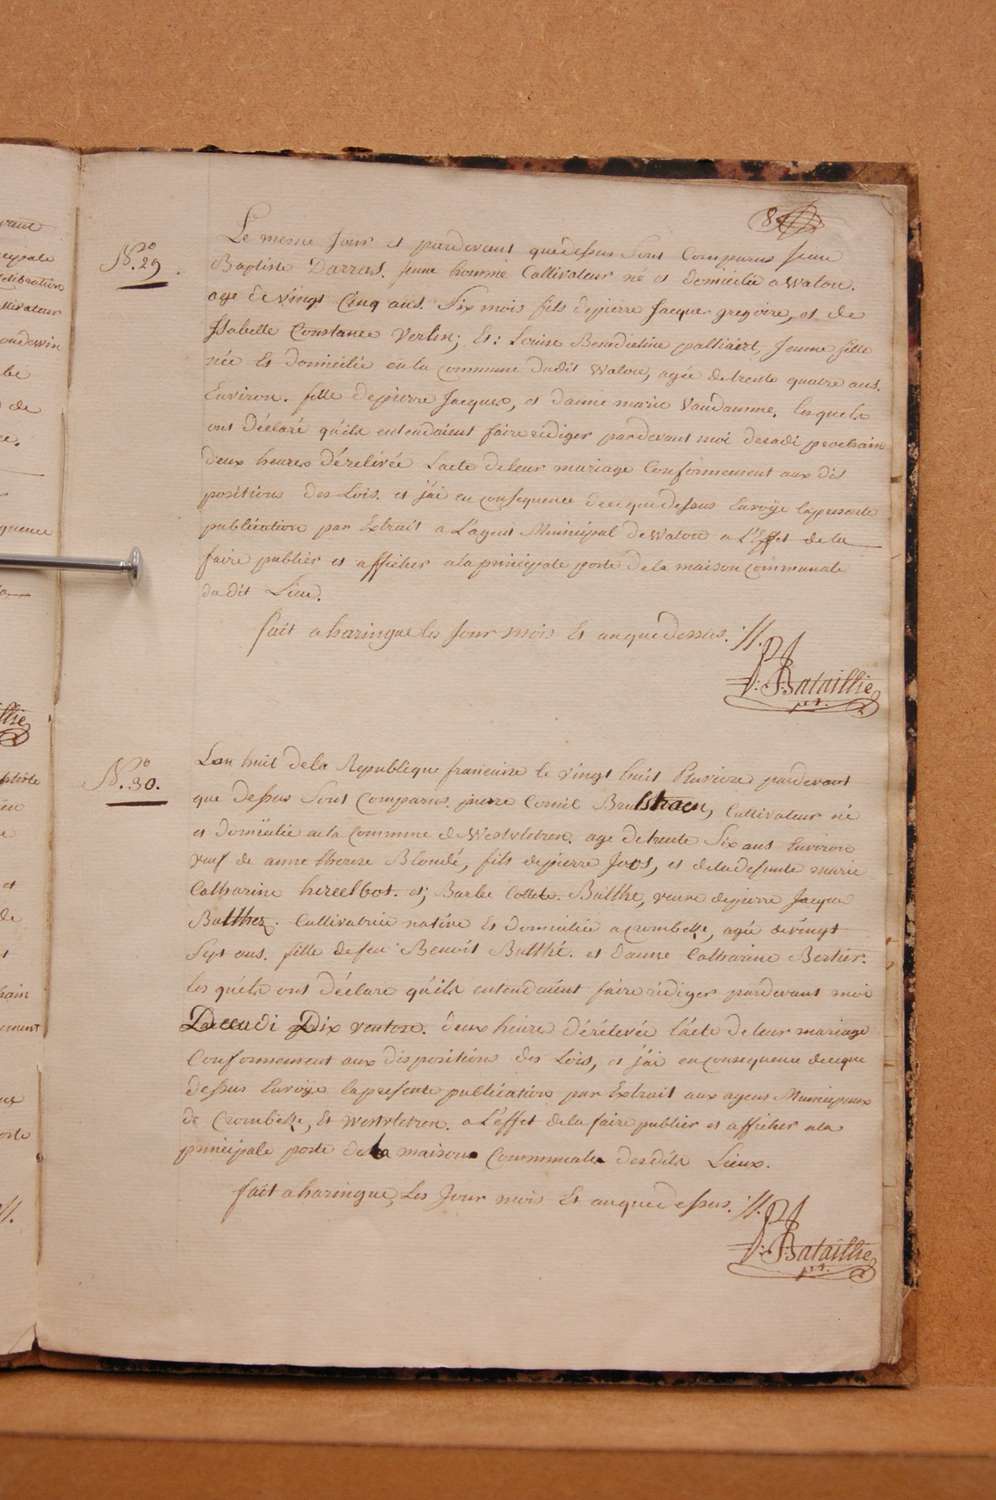 8
N.º 29
Le meme Jour et pardevant que dessus Sont Comparus Jean
Baptiste Darras. jeune homme Cultivateur né et domicilié a Watou.
age de vingt Cinq ans. Six mois fils de pierre Jacque gregoire, et de
Isabelle Constance Verlin; Et: Louise Benedictine palliaert, Jeune fille
née Et domicilié en la commune dudit Watou, agée de trente quatre ans.
Environ. fille de pierre Jacques, et d'anne marie Vandamme. lesquels
ont Déclaré qu'ils entendaient faire rédiger pardevant moi decadi prochain
deux heures dérélévée Lacte de leur mariage Conformement aux dis
positions des Lois. et j'ai en consequence de ce que dessus Envoÿé la presente
publication par Extrait a L'agent Municipal de Watou a L'Effet de la
faire publier et afficher a la principale porte de la maison communale
du dit Lieu.
fait a haringue les Jour mois Et an que dessus. //.
P: J: Bataillie
N.º 30.
Lan huit de la Republique francaise le vingt huit Pluviose pardevant
que dessus Sont Comparus. pierre Corneil Beulstraen, Cultivateur né
et domicilié en la Commune de Westvletren. age de trente Six ans Environ
veuf de anne therese Blondé, fils de pierre Joos, et de la defunte marie
Catharine hereelbot. et; Barbe Collete. Butthe, veuve de pierre Jacque
Butthez. Cultivatrice native Et domiciliée a crombeke, agée de vingt
Sept ans. fille de feu Benoit Butthé. et d'anne Catharine Bertier.
les quéls ont déclare qu'ils entendaiént faire rédiger pardevant moi
Decadi Dix ventose. deux heures dérélevée l'acte de leur mariage
Conformement aux dispositions des Lois, et j'ai en consequence de ce que
dessus Envoÿé la presente publication par Extrait aux agens Municipaux
de Crombeke, Et Westvletren. a L'effet de la faire publier et afficher a la
principale porte de la maison Communale desdits Lieux.
fait a haringue, Les Jour mois Et an que dessus. //.
P: J: Bataillie